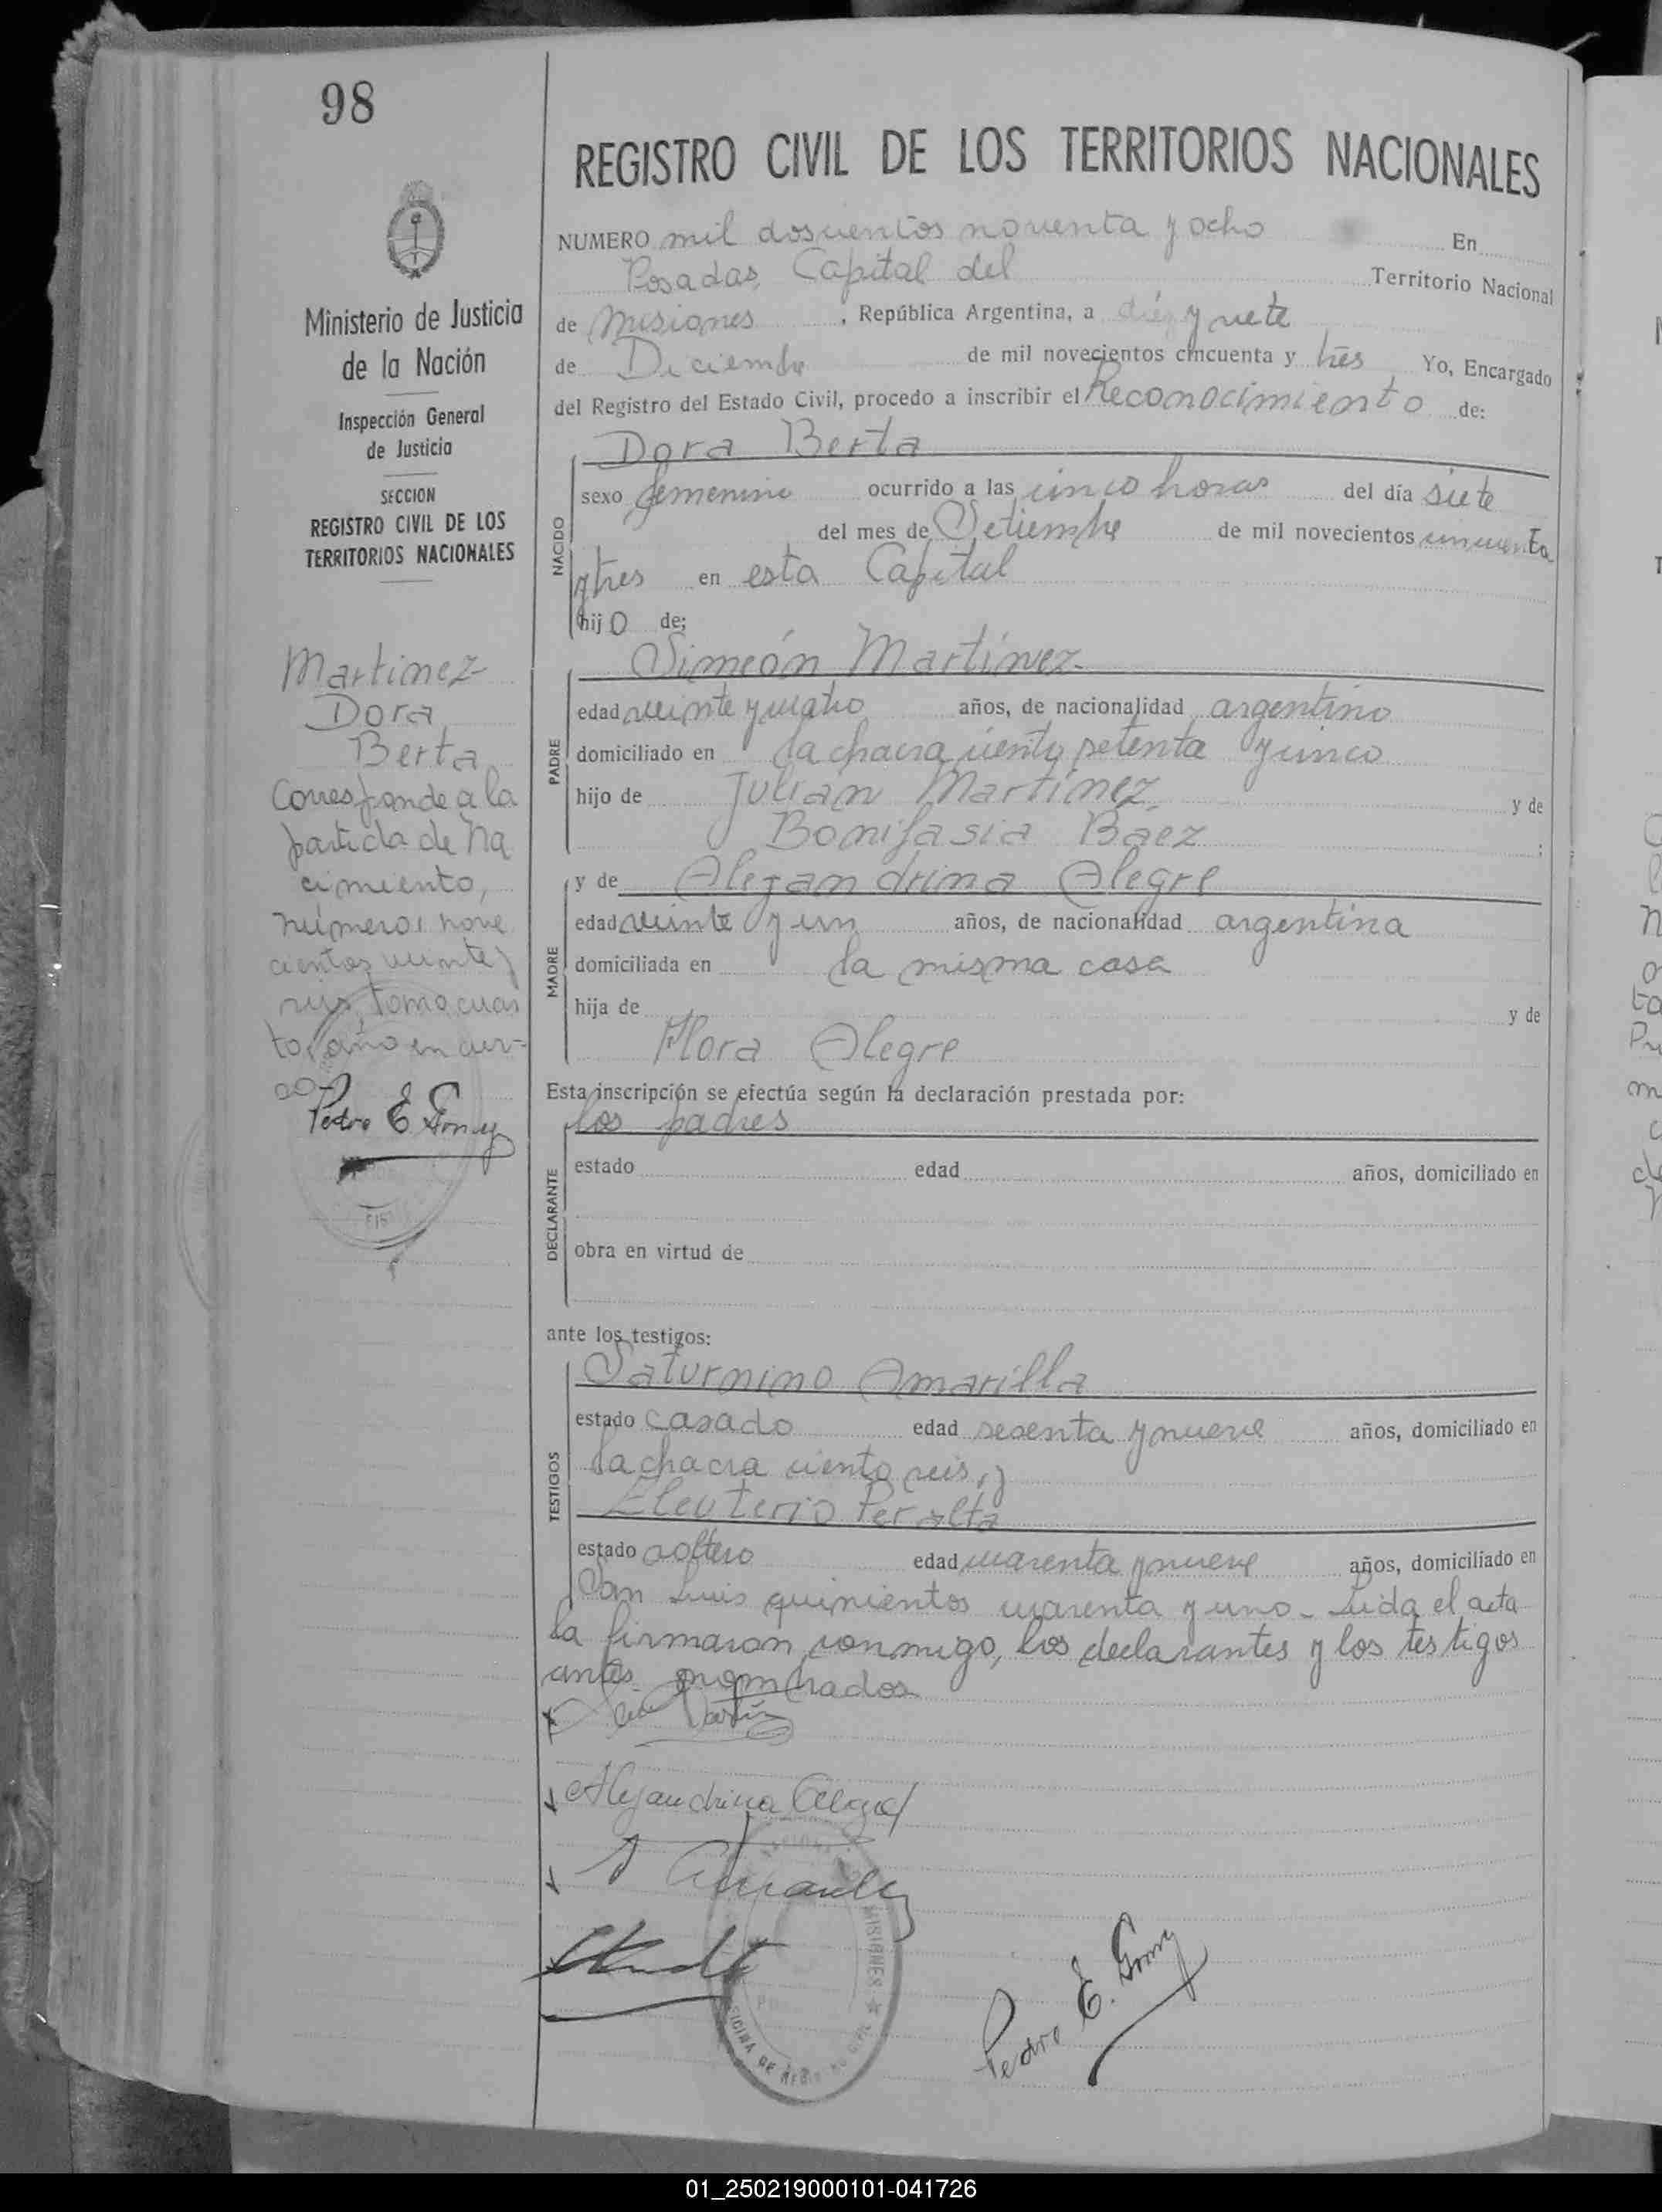 98
REGISTRO CIVIL DE LOS TERRITORIOS NACIONALES
Ministerio de Justicia
de la Nación
Inspección General
de Justicia
SECCION
REGISTRO CIVIL DE LOS
TERRITORIOS NACIONALES
Martinez
Dora
Berta
Corresponde a la
partida de Na
cimiento,
número nove
cientos veinte y
seis, tomo cuar
to, año en cur-
so-
Pedro E. Gomez
NUMERO mil doscientos noventa y ocho En
Posadas, Capital del Territorio Nacional
de Misiones, República Argentina, a diez y siete
de Diciembre de mil novecientos cincuenta y tres Yo, Encargado
del Registro del Estado Civil, procedo a inscribir el Reconocimiento de:
Dora Berta
NACIDO
sexo femenino ocurrido a las cinco horas del día siete
del mes de Setiembre de mil novecientos cincuenta
y tres en esta Capital
hijo de;
Simeón Martínez
PADRE
edad veinte y cuatro años, de nacionalidad argentino
domiciliado en la chacra ciento setenta y cinco
hijo de Julián Martínez y de
Bonifasia Báez ;
y de Alejandrina Alegre
MADRE
edad veinte y un años, de nacionalidad argentina
domiciliada en la misma casa
hija de y de
Flora Alegre
Esta inscripción se efectúa según la declaración prestada por:
los padres
DECLARANTE
estado edad años, domiciliado en
obra en virtud de
ante los testigos:
Saturnino Amarilla
TESTIGOS
estado casado edad sesenta y nueve años, domiciliado en
la chacra ciento seis, y
Eleuterio Peralta
estado soltero edad cuarenta y nueve años, domiciliado en
San Luis quinientos cuarenta y uno- Leída el acta
la firmaron conmigo, los declarantes y los testigos
antes nombrados
Alejandrina Alegre
MISIONES
OFICINA DE REGISTRO CIVIL
Pedro E. Gomez
01_250219000101-041726